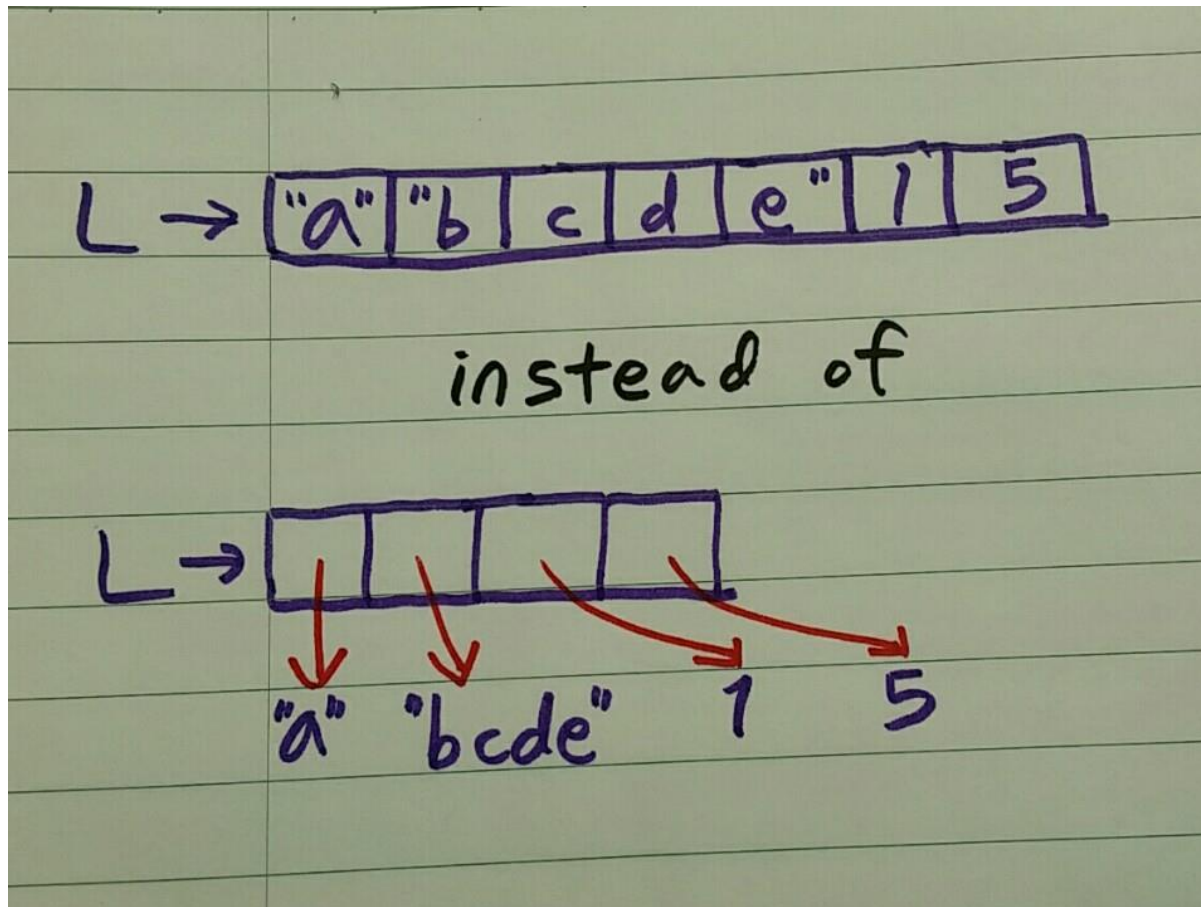 L → "a" "b c d e" 1 5
instead of
L →
"a" "bcde" 1 5